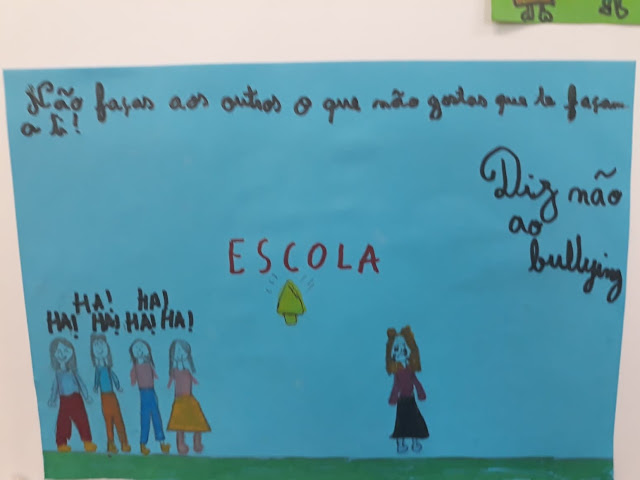 Não faças aos outros o que não gostas que te façam
a ti!
Diz não
ao
bullying
ESCOLA
HA! HA!
HA! HA! HA! HA!